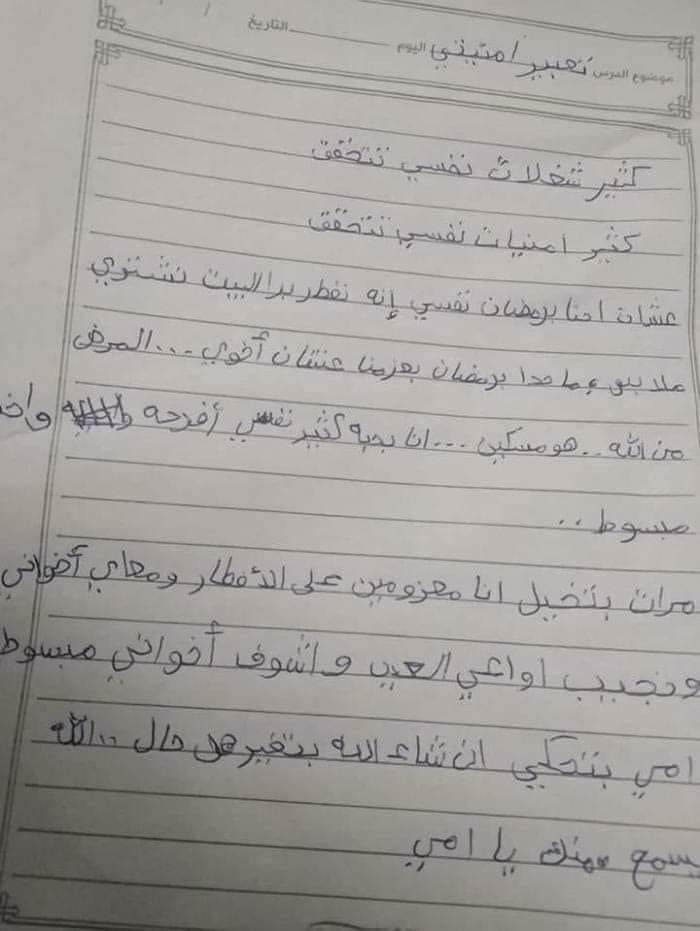 موضوع الدرس تعبير امنيتي اليوم التاريخ /
كثير شغلات نفسي تتحقق
كثير امنيات نفسي تتحقق
عشان احنا برمضان نفسي إنه نفطر برا البيت نشتري
ملابس وما حدا برمضان بعزمنا عشان أخوي ... المرض
من الله .. هو مسكين ... انا بحبه كثير نفسي أفرحه
مبسوط ..
مرات بتخيل انا معزومين على الأفطار ومعاي أخواني
ونجيب اواعي العيد واشوف أخواني مبسوط
امي بتحكي ان شاء الله بتغير هل حال .. الله
يسمع منك يا امي